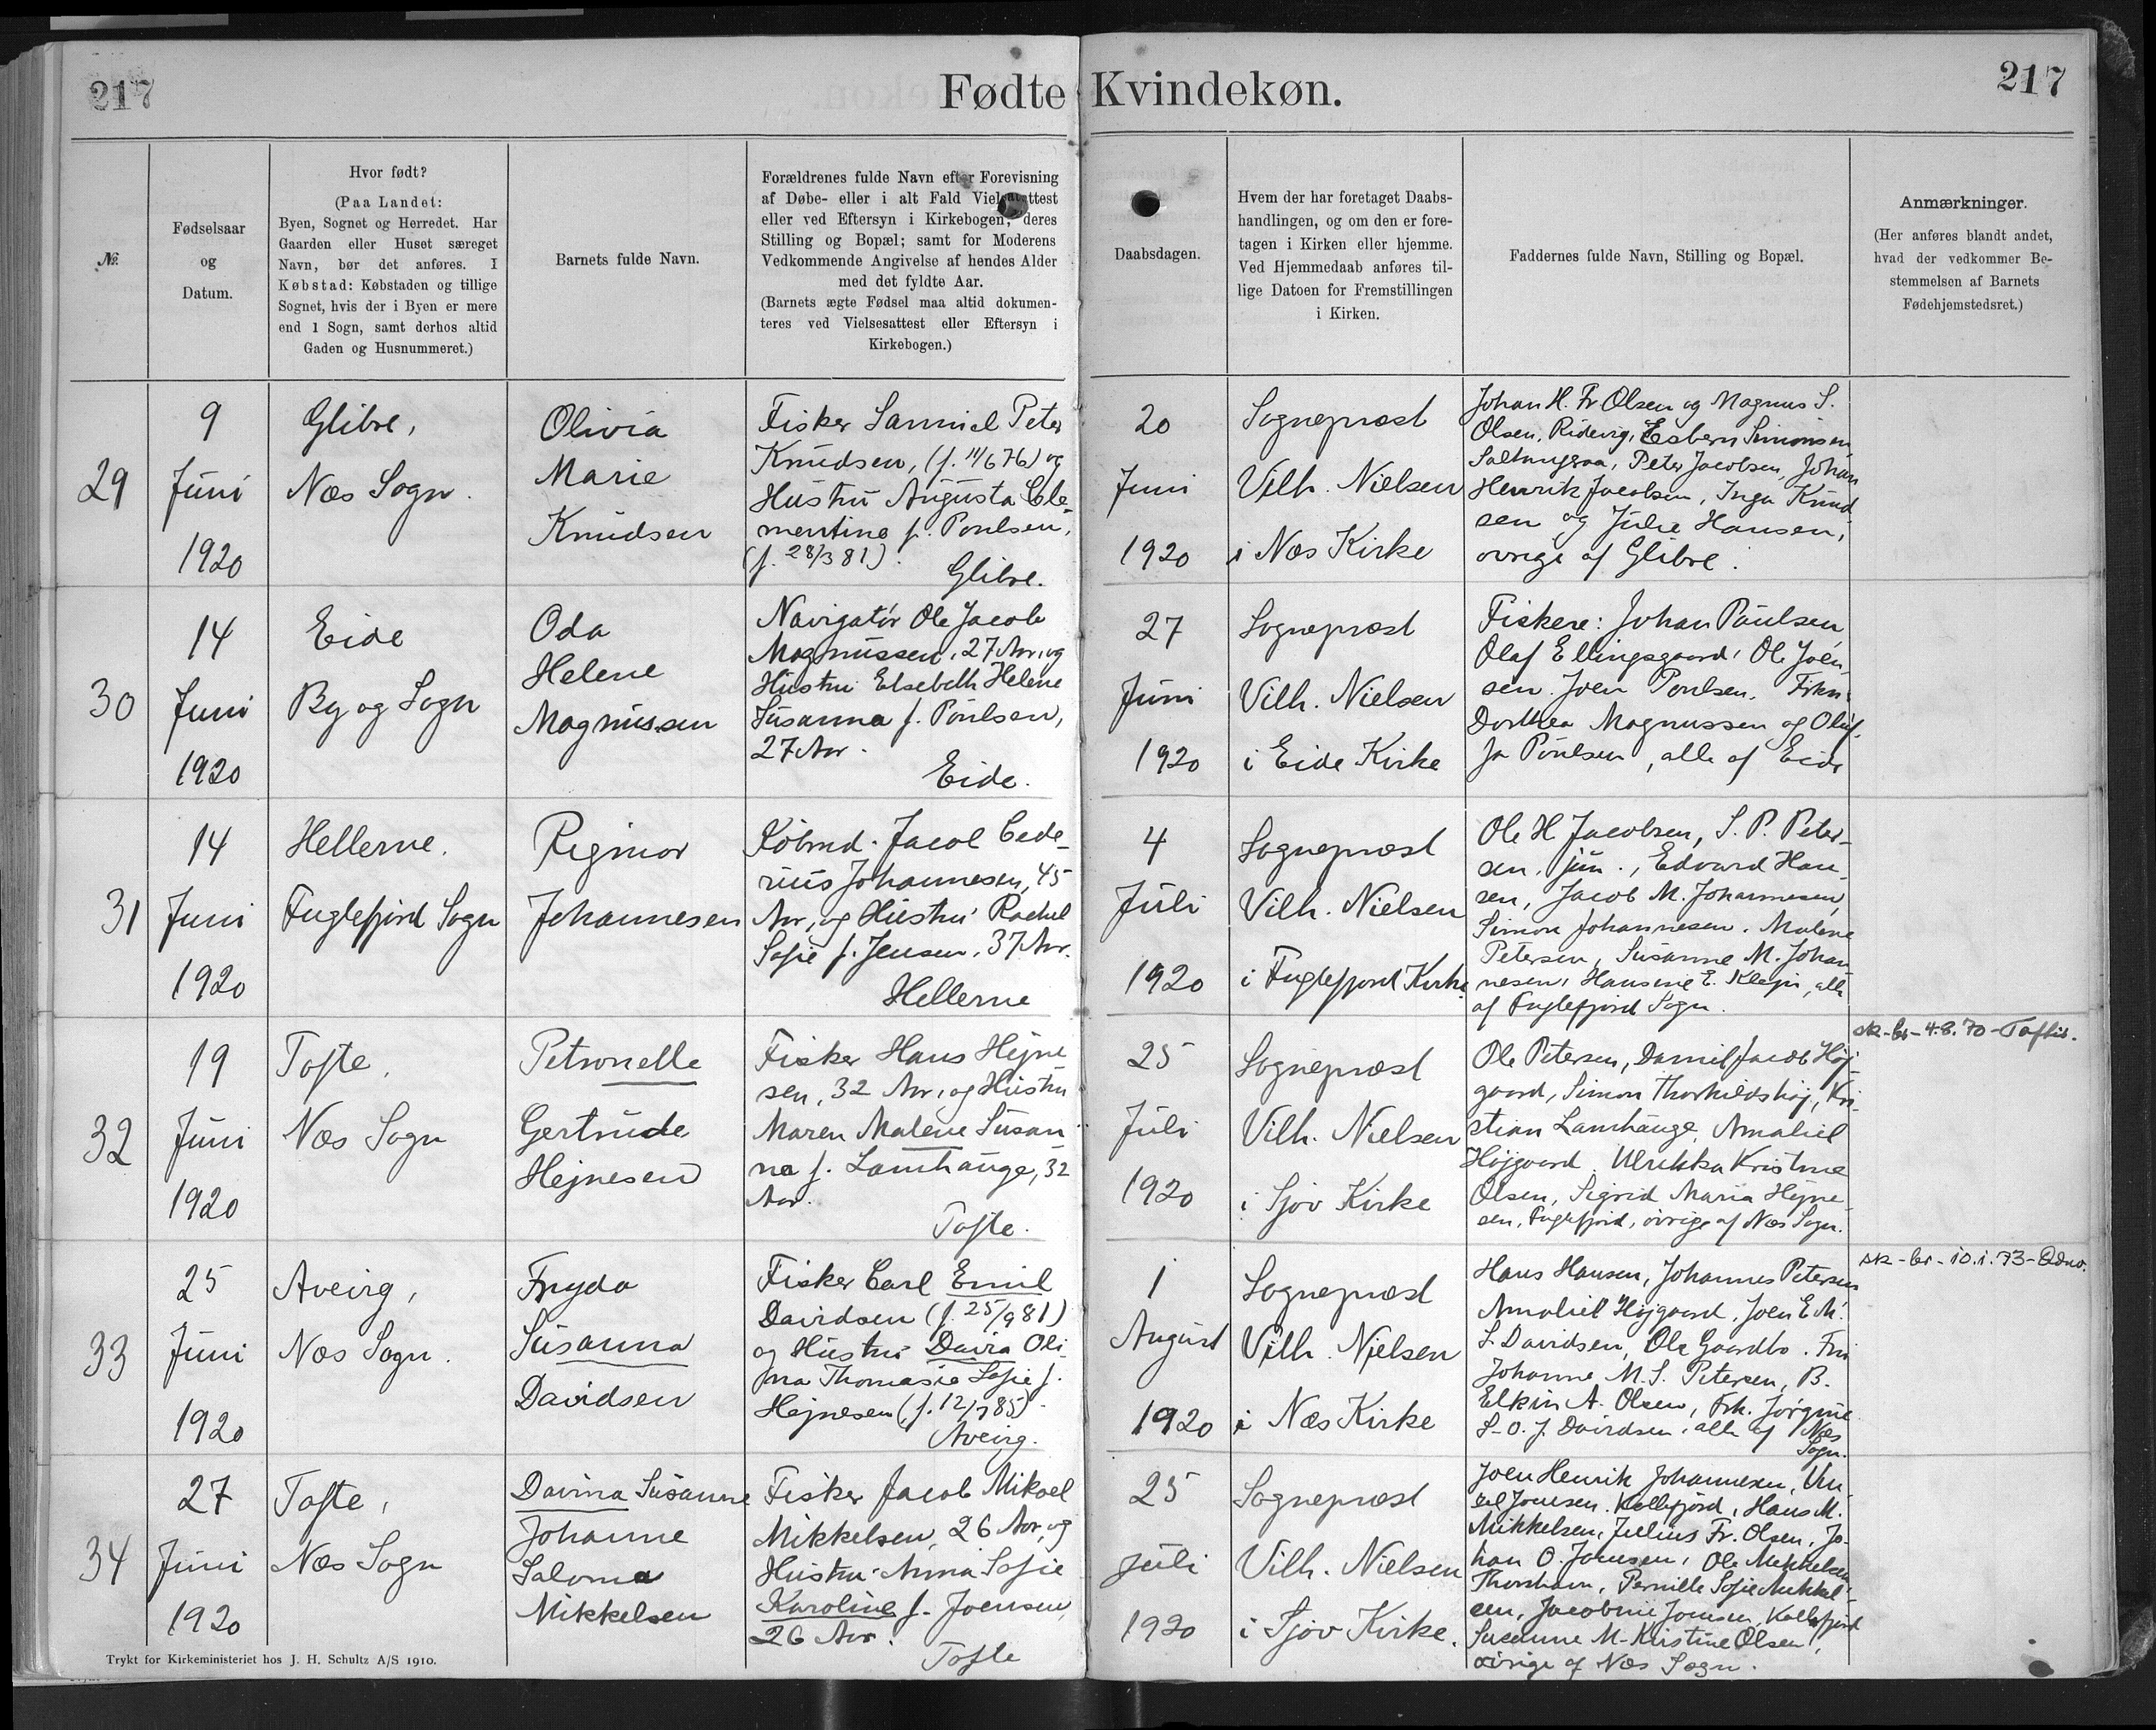 217
Fødte Kvindekøn.
217
№
Fødselsaar
og
Datum.
Hvor født?
(Paa Landet:
Byen, Sognet og Herredet. Har
Gaarden eller Huset særeget
Navn, bør det anføres. I
Købstad: Købstaden og tillige
Sognet, hvis der i Byen er mere
end 1 Sogn, samt derhos altid
Gaden og Husnummeret.)
Barnets fulde Navn.
Forældrenes fulde Navn efter Forevisning
af Døbe- eller i alt Fald Vielsesattest
eller ved Eftersyn i Kirkebogen, deres
Stilling og Bopæl; samt for Moderens
Vedkommende Angivelse af hendes Alder
med det fyldte Aar.
(Barnets ægte Fødsel maa altid dokumen-
teres ved Vielsesattest eller Eftersyn i
Kirkebogen.)
Daabsdagen.
Hvem der har foretaget Daabs-
handlingen, og om den er fore-
tagen i Kirken eller hjemme.
Ved Hjemmedaab anføres til-
lige Datoen for Fremstillingen
i Kirken.
Faddernes fulde Navn, Stilling og Bopæl.
Anmærkninger.
(Her anføres blandt andet,
hvad der vedkommer Be-
stemmelsen af Barnets
Fødehjemstedsret.)
29
9
Juni
1920
Glibre,
Næs Sogn.
Olivia
Marie
Knudsen
Fisker Samuel Peter
Knudsen, (f. 11/6 76) og
Hustru Augusta Cle-
mentine f. Poulsen,
(f. 28/3 81).
Glibre.
20
Juni
1920
Sognepræst
Vilh. Nielsen
i Næs Kirke
Johan H. Fr Olsen og Magnus S.
Olsen, Ridevig, Esbern Simonsen,
Saltnygraa, Peter Jacobsen, Johan
Henrik Jacobsen, Inga Knud-
sen og Julie Hansen,
øvrige af Glibre.
30
14
Juni
1920
Eide
By og Sogn
Oda
Helene
Magnussen
Navigatør Ole Jacob
Magnussen, 27 Aar, og
Hustru Elsebeth Helene
Susanna f. Poulsen,
27 Aar.
Eide.
27
Juni
1920
Sognepræst
Vilh. Nielsen
i Eide Kirke
Fiskere: Johan Paulsen
Olaf Ellingsgaard, Ole Joen-
sen. Joen Poulsen.
Dorthea Magnussen og Oluf-
fa Poulsen, alle af Eide
31
14
Juni
1920
Hellerne.
Fuglefjord Sogn
Rigmor
Johannesen
Købmd. Jacob Cede-
rius Johannesen, 45
Aar, og Hustru Rachel
Sofie f. Jensen, 37 Aar.
Hellerne
4
Juli
1920
Sognepræst
Vilh. Nielsen
i Fuglefjord Kirke
Ole H Jacobsen, S. P. Peter-
sen, jun., Edvard Han-
sen, Jacob M. Johannesen,
Simon Johannesen. Malene
Petersen, Susanne M. Johan-
nesen, Hansine E. Klejn, alle
af Fuglefjord Sogn.
32
19
Juni
1920
Tofte,
Næs Sogn
Petronelle
Gertrude
Hejnesen
Fisker Hans Hejne-
sen, 32 Aar, og Hustru
Maren Malene Susan-
na f. Lamhauge, 32
Aar.
Tofte.
25
Juli
1920
Sognepræst
Vilh. Nielsen
i Sjov Kirke
Ole Petersen, Daniel Jacob Høj-
gaard, Simon Thorkildshøj, Kri-
stian Lamhauge, Amaliel
Højgaard. Ulrikka Kristine
Olsen, Sigrid Maria Hejne-
sen, Fuglefjord, øvrige af Næs Sogn.
sk-br-4.8.70-Toftir.
33
25
Juni
1920
Aveirg,
Næs Sogn.
Fryda
Susanna
Davidsen
Fisker Carl Emil
Davidsen (f. 25/9 81)
og Hustru Davia Oli-
na Thomasia Sofie f.
Hejnesen (f. 12/7 85).
Aveirg.
1
August
1920
Sognepræst
Vilh. Nielsen
i Næs Kirke
Hans Hansen, Johannes Petersen
Amaliel Højgaard, Joen E. M.
S. Davidsen, Ole Gaardbo. Fru
Johanne M. S. Petersen, B.
Elkin A. Olsen, Frk. Jørgine
S-O. J. Davidsen, alle af Næs
Sogn.
sk-br-10.1.73-
34
27
Juni
1920
Tofte,
Næs Sogn
Davina Susanne
Johanne
Saloma
Mikkelsen
Fisker Jacob Mikael
Mikkelsen, 26 Aar, og
Hustru Anna Sofie
Karoline f. Joensen,
26 Aar.
Tofte
25
Juli
1920
Sognepræst
Vilh. Nielsen
i Sjov Kirke.
Joen Henrik Johannesen,
Joensen. Kollefjord, Hans M.
Mikkelsen, Julius Fr. Olsen, Jo-
han O. Joensen, Ole Mikkelsen,
Thorshavn, Pernille Sofie Mikkel-
sen, Jacobine Joensen, Kollefjord
Susanne M. Kristine Olsen,
øvrige af Næs Sogn.
Trykt for Kirkeministeriet hos J. H. Schultz A/S 1910.